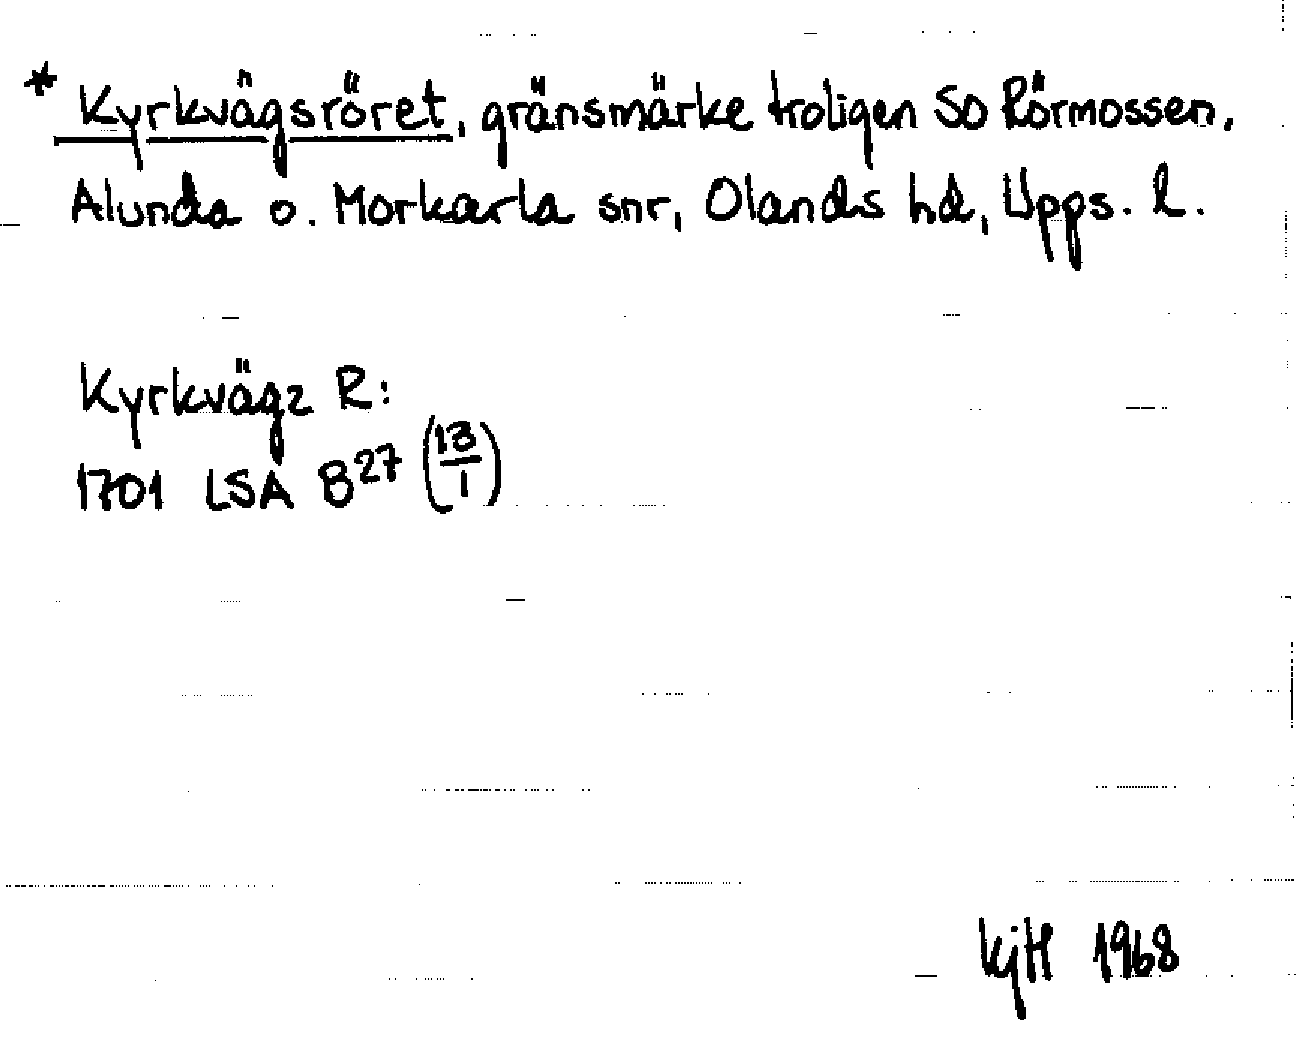 * Kyrkvägsröret, gränsmärke troligen SO Rörmossen,
Alunda o. Morkarla snr, Olands hd, Upps. l.
Kyrkvägz R:
1701 LSA B27 (13/1)
KjH 1968